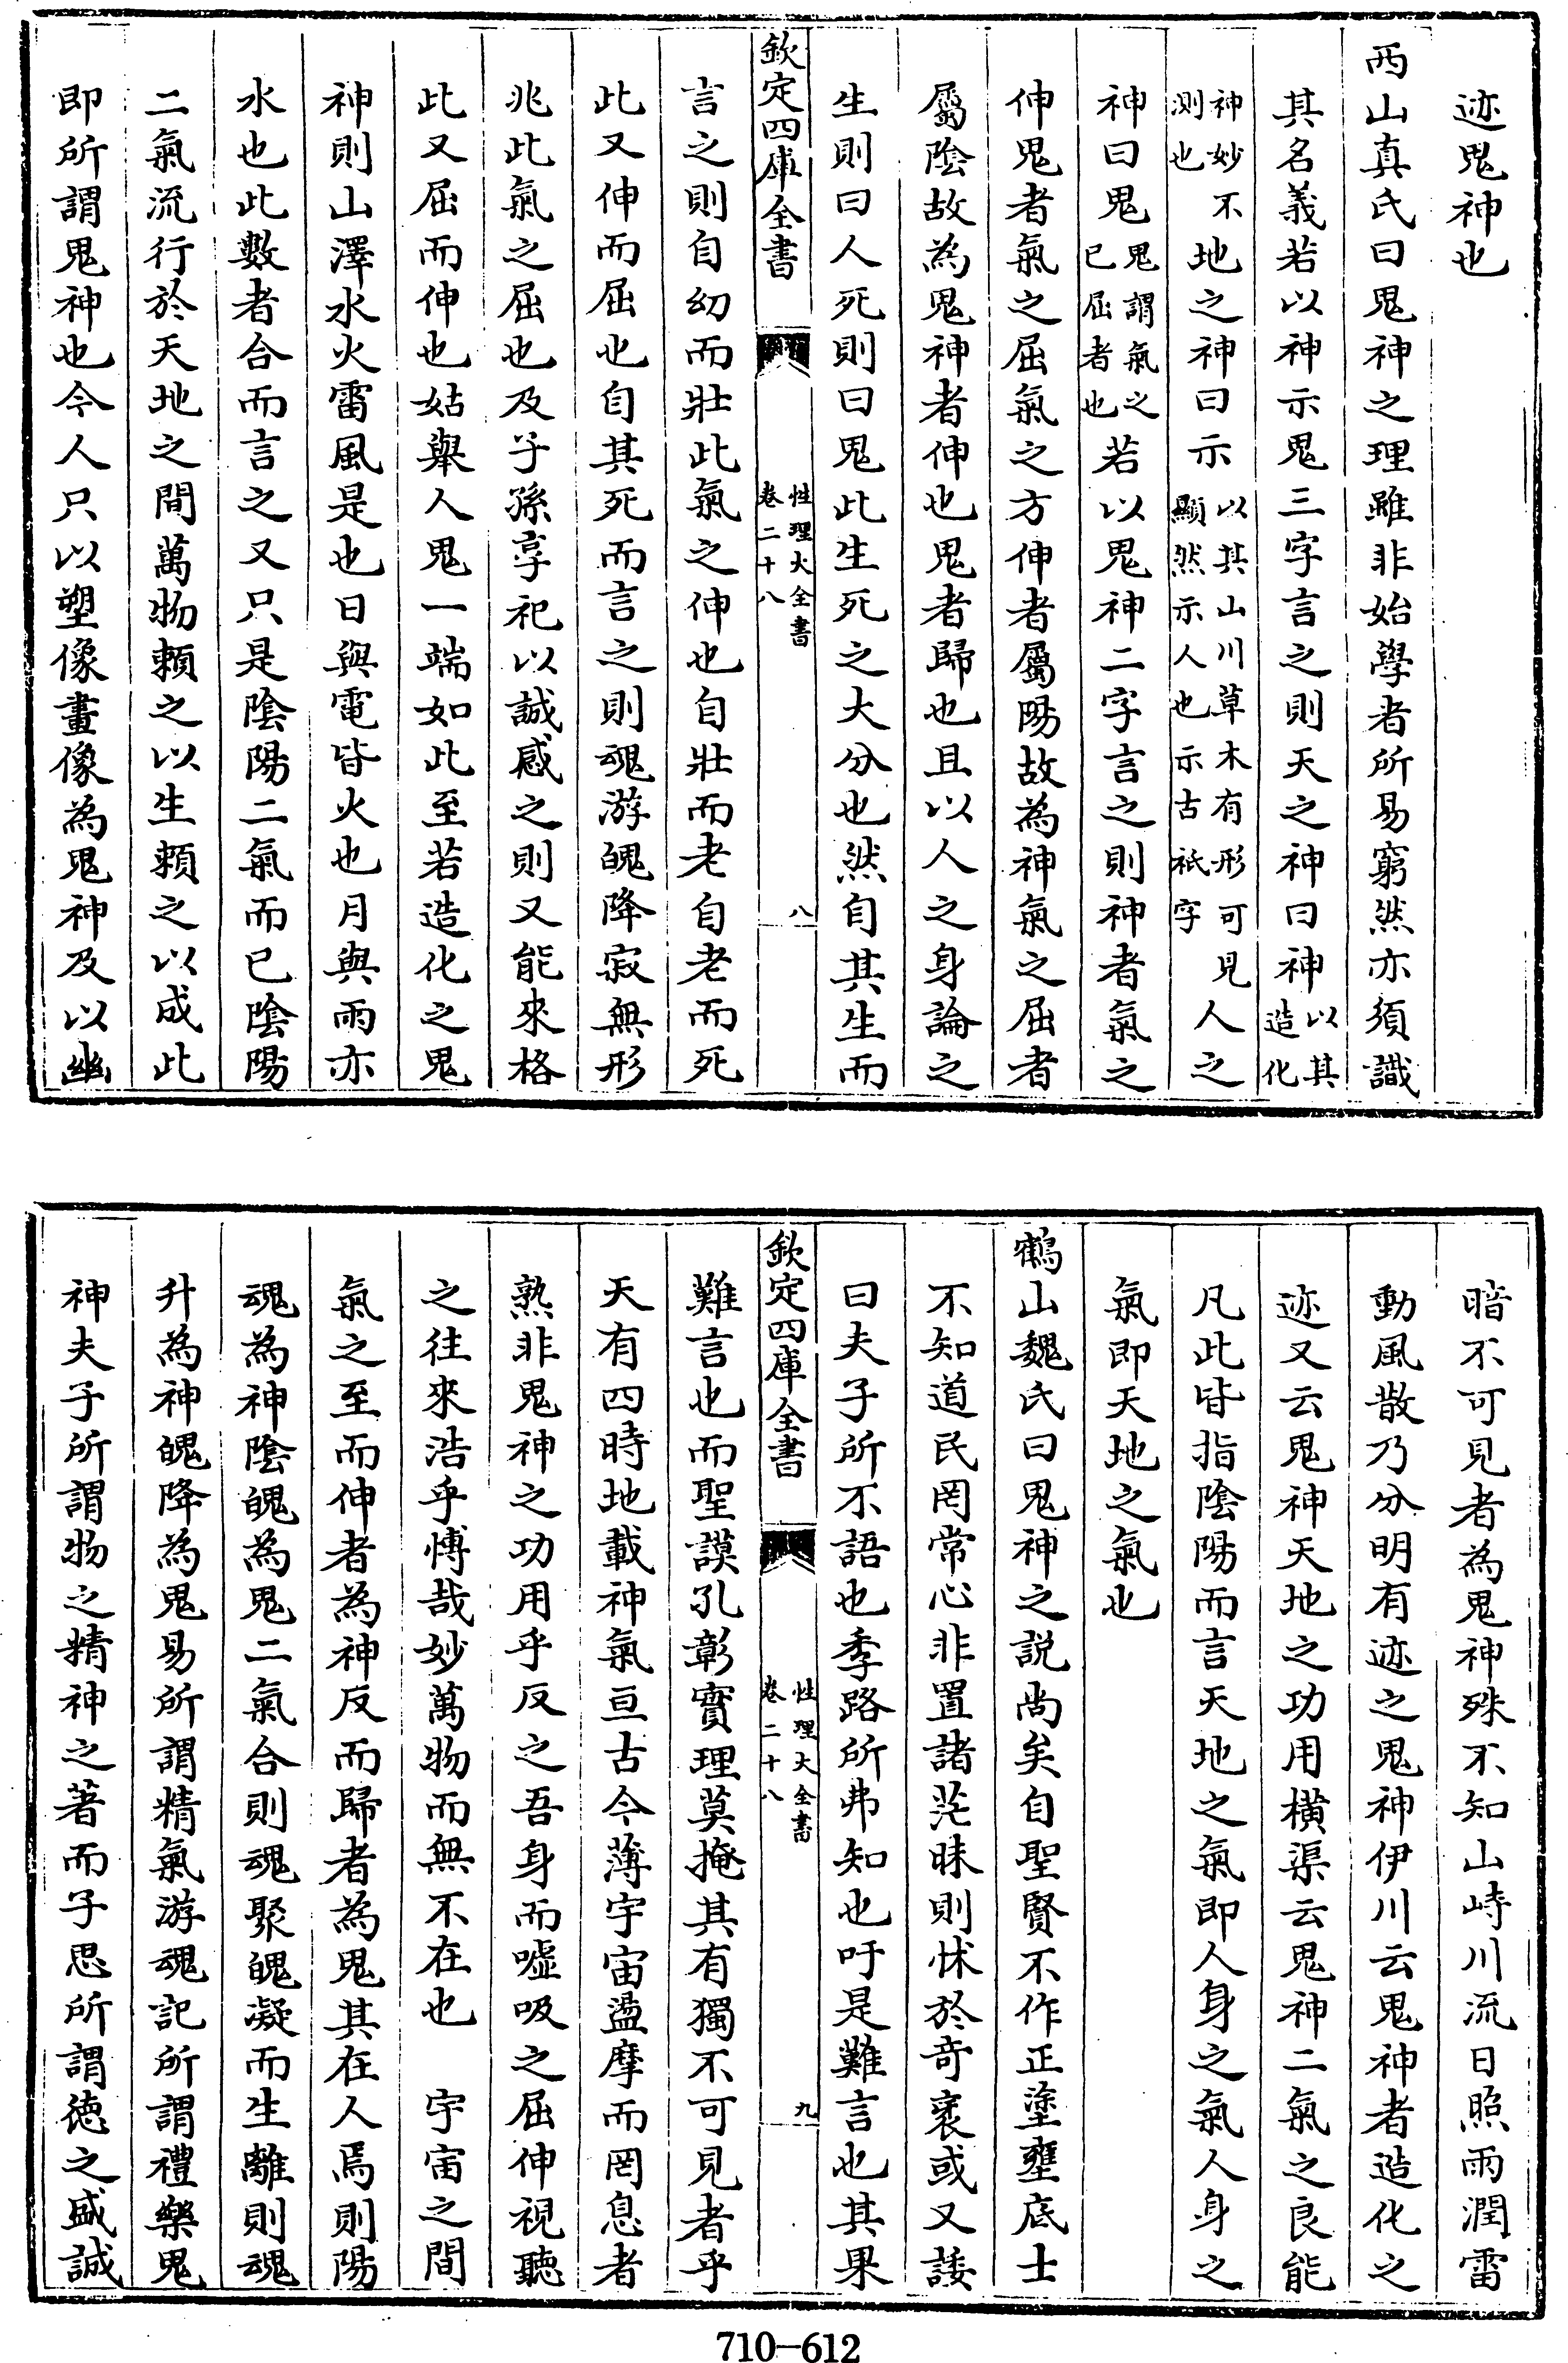 迹鬼神也
西山真氏曰鬼神之理雖非始學者所易窮然亦須識
其名義若以神示鬼三字言之則天之神曰神以其造化
神妙不測也地之神曰示以其山川草木有形可見顯然示人也示古祇字人之
神曰鬼鬼謂氣之已屈者也若以鬼神二字言之則神者氣之
伸鬼者氣之屈氣之方伸者屬陽故為神氣之屈者
屬陰故為鬼神者伸也鬼者歸也且以人之身論之
生則曰人死則曰鬼此生死之大分也然自其生而
欽定四庫全書
性理大全書
卷二十八
八
言之則自幼而壯此氣之伸也自壯而老自老而死
此又伸而屈也自其死而言之則魂游魄降寂無形
兆此氣之屈也及子孫享祀以誠感之則又能來格
此又屈而伸也姑舉人鬼一端如此至若造化之鬼
神則山澤水火雷風是也日與電皆火也月與雨亦
水也此數者合而言之又只是陰陽二氣而已陰陽
二氣流行於天地之間萬物賴之以生賴之以成此
即所謂鬼神也今人只以塑像畫像為鬼神及以幽
暗不可見者為鬼神殊不知山峙川流日照雨潤雷
動風散乃分明有迹之鬼神伊川云鬼神者造化之
迹又云鬼神天地之功用橫渠云鬼神二氣之良能
凡此皆指陰陽而言天地之氣即人身之氣人身之
氣即天地之氣也
鶴山魏氏曰鬼神之説尚矣自聖賢不作正塗壅底士
不知道民罔常心非置諸茫昧則怵於奇袤或又諉
曰夫子所不語也季路所弗知也吁是難言也其果
欽定四庫全書
性理大全書
卷二十八
九
難言也而聖謨孔彰實理莫掩其有獨不可見者乎
天有四時地載神氣亘古今薄宇宙盪摩而罔息者
孰非鬼神之功用乎反之吾身而噓吸之屈伸視聽
之往來浩乎博哉妙萬物而無不在也 宇宙之間
氣之至而伸者為神反而歸者為鬼其在人焉則陽
魂為神陰魄為鬼二氣合則魂聚魄凝而生離則魂
升為神魄降為鬼易所謂精氣游魂記所謂禮樂鬼
神夫子所謂物之精神之著而子思所謂徳之盛誠
710-612